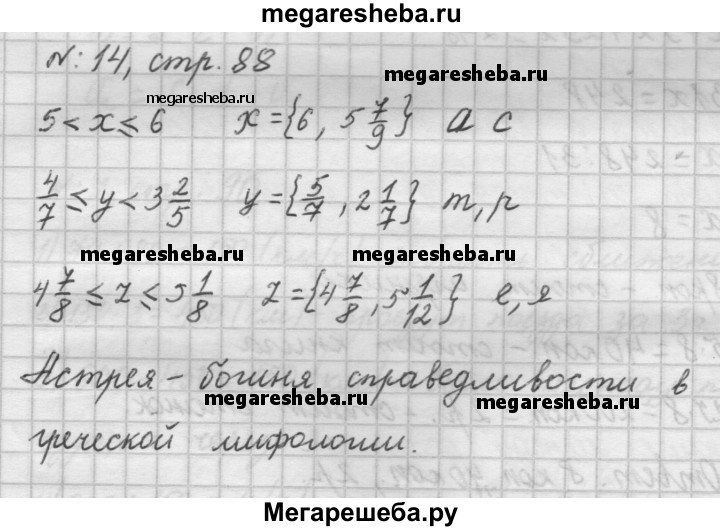 megaresheba.ru
№: 14, стр. 88
megaresheba.ru
megaresheba.ru
5 < x ≤ 6 x = {6, 5 7/9} а с
4/7 ≤ y < 3 2/5 y = {5/7, 2 1/7} т, р
megaresheba.ru megaresheba.ru
4 7/8 ≤ z ≤ 5 1/8 z = {4 7/8, 5 1/12} е, я
Астрея – богиня справедливости в
megaresheba.ru megaresheba.ru
греческой мифологии.
Мегарешеба.ру